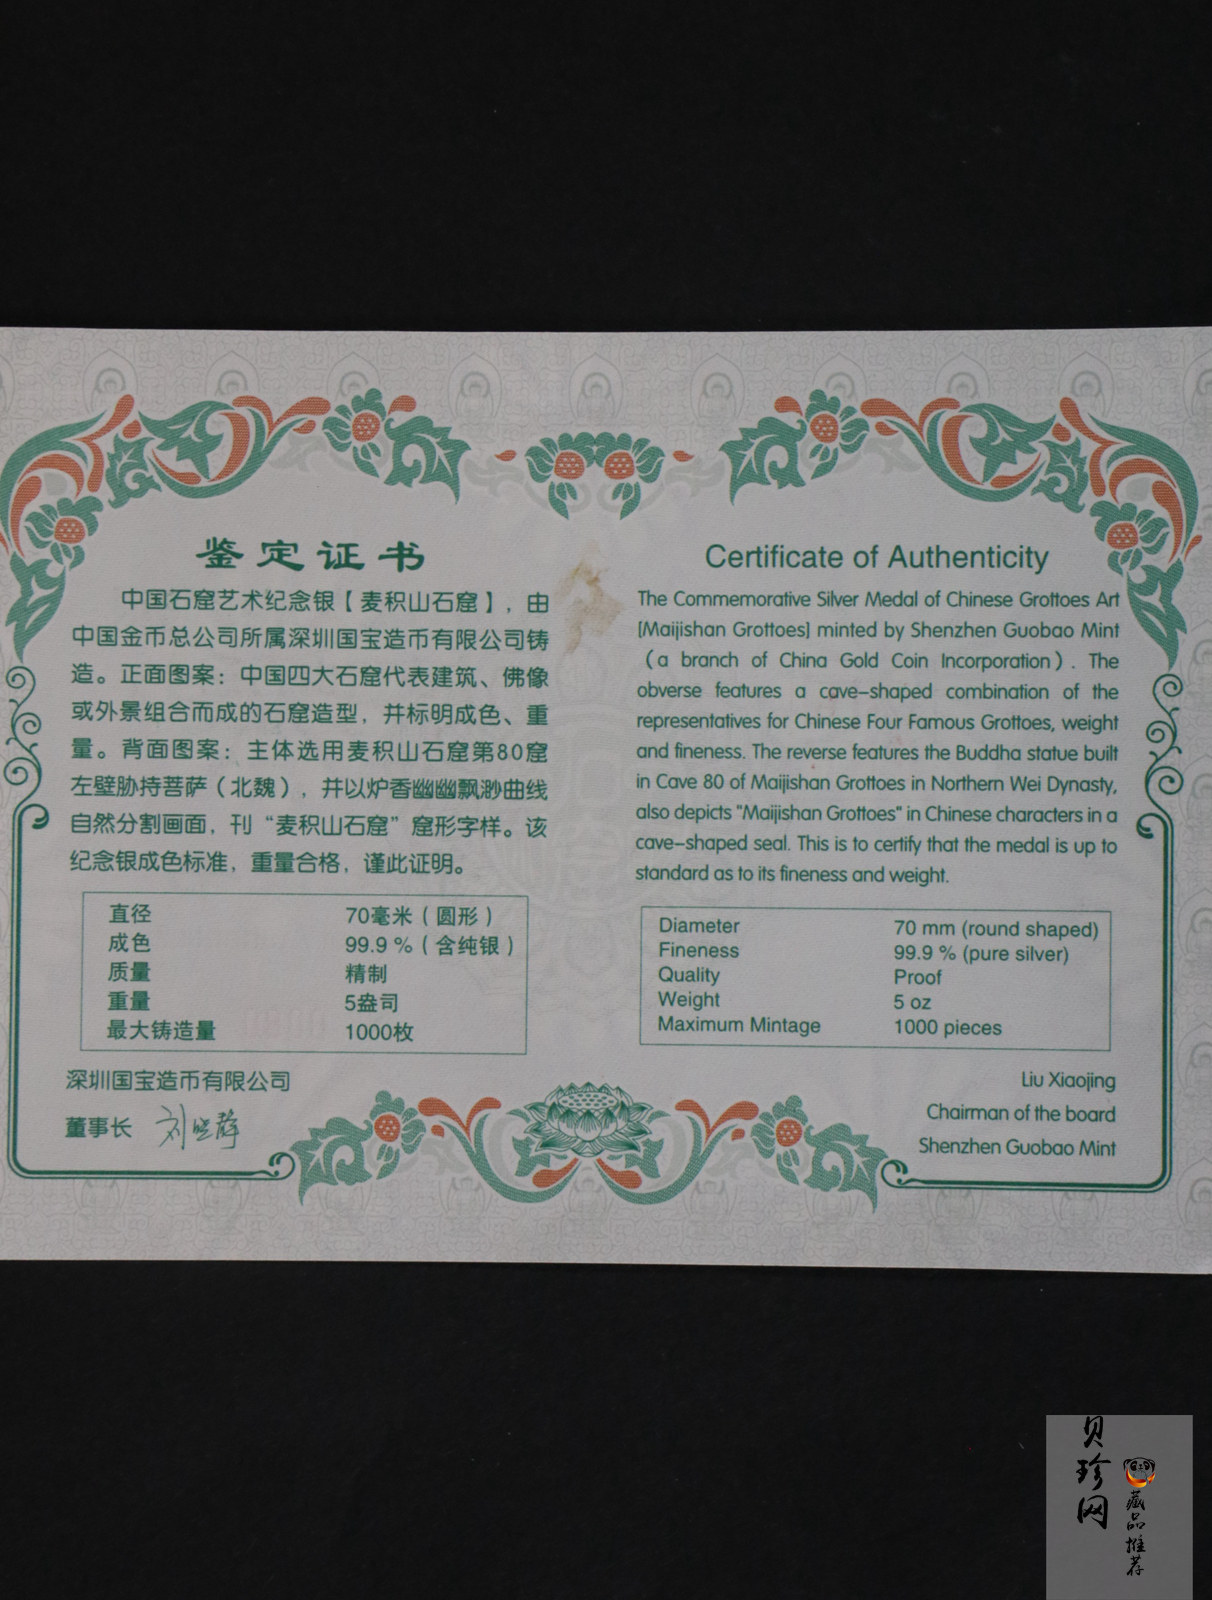 鉴定证书
中国石窟艺术纪念银【麦积山石窟】，由
中国金币总公司所属深圳国宝造币有限公司铸
造。正面图案：中国四大石窟代表建筑、佛像
或外景组合而成的石窟造型，并标明成色、重
量。背面图案：主体选用麦积山石窟第80窟
左壁胁持菩萨（北魏），并以炉香幽幽飘渺曲线
自然分割画面，刊“麦积山石窟”窟形字样。该
纪念银成色标准，重量合格，谨此证明。
直径 70毫米（圆形）
成色 99.9 %（含纯银）
质量 精制
重量 5盎司
最大铸造量 1000枚
深圳国宝造币有限公司
董事长 刘晓静
Certificate of Authenticity
The Commemorative Silver Medal of Chinese Grottoes Art
[Maijishan Grottoes] minted by Shenzhen Guobao Mint
（a branch of China Gold Coin Incorporation）. The
obverse features a cave-shaped combination of the
representatives for Chinese Four Famous Grottoes, weight
and fineness. The reverse features the Buddha statue built
in Cave 80 of Maijishan Grottoes in Northern Wei Dynasty,
also depicts "Maijishan Grottoes" in Chinese characters in a
cave-shaped seal. This is to certify that the medal is up to
standard as to its fineness and weight.
Diameter 70 mm (round shaped)
Fineness 99.9 % (pure silver)
Quality Proof
Weight 5 oz
Maximum Mintage 1000 pieces
Liu Xiaojing
Chairman of the board
Shenzhen Guobao Mint
贝珍网
藏品推荐